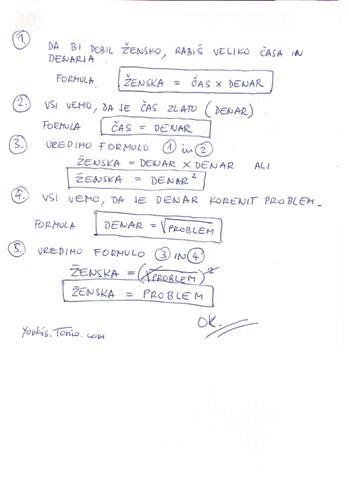 1. DA BI DOBIL ŽENSKO, RABIŠ VELIKO ČASA IN
DENARJA
FORMULA ŽENSKA = ČAS x DENAR
2. VSI VEMO, DA JE ČAS ZLATO (DENAR)
FORMULA ČAS = DENAR
3. UREDIMO FORMULO 1 in 2
ŽENSKA = DENAR x DENAR ALI
ŽENSKA = DENAR²
4. VSI VEMO, DA JE DENAR KORENIT PROBLEM-
FORMULA DENAR = √PROBLEM
5. UREDIMO FORMULO 3 IN 4
ŽENSKA = (√PROBLEM)²
ŽENSKA = PROBLEM
OK.